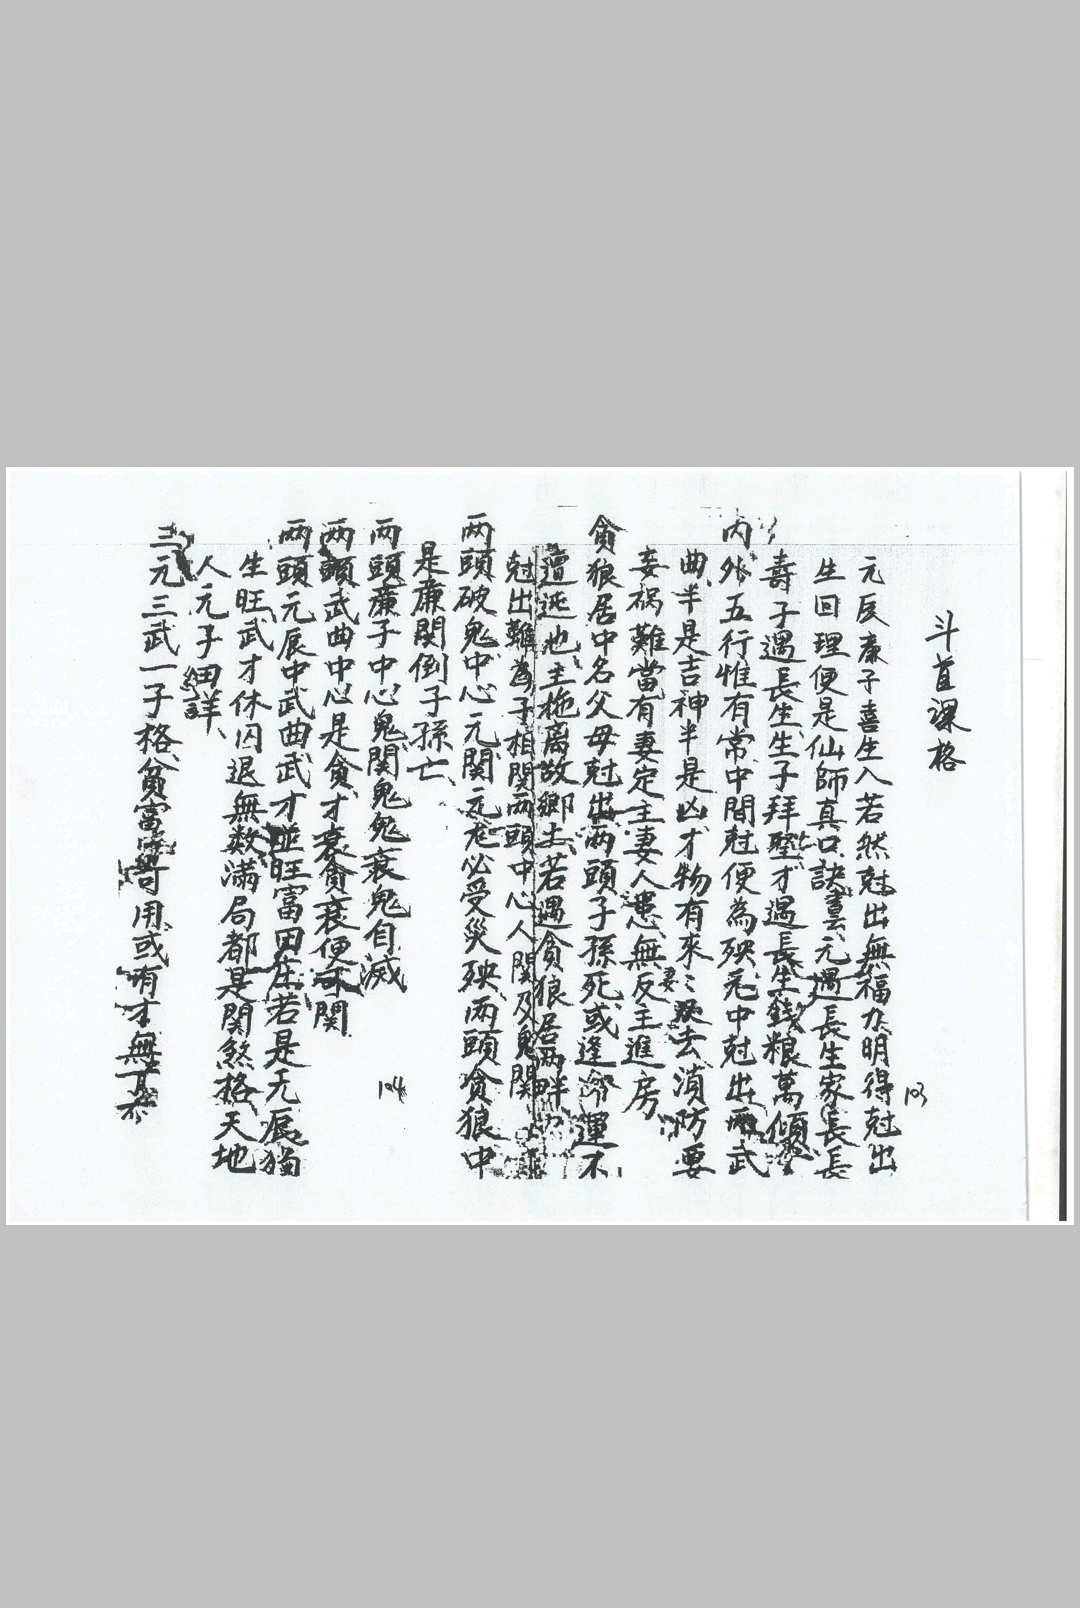 斗首課格
元辰廉子喜生入若然尅出無福力明得尅出
生回理便是仙師真口訣元遇長生家長長
壽子遇長生生子拜聖才遇長生錢粮萬傾
內外五行惟有常中間尅便為殃禿中尅出兩武
曲半是吉神半是凶才物有來妻又去湏防要
妾禍難當有妻定主妻人患無反主進房
貪狼居中名父母尅出兩頭子孫死或逢命運不
遭迍也主拖离故鄉土若遇貪狼居兩畔
尅出難為子相関兩頭中心人関及鬼関
両頭破鬼中心元関元尨必受災殃兩頭貪狼中
是廉関倒子孫亡
両頭廉子中心鬼関鬼鬼衰鬼自滅
両頭武曲中心是貪才衰貪衰便可関
両頭元辰中武曲武才並旺富田庄若是元辰獨
生旺武才休囚退無数滿局都是関煞格天地
人元子細詳
三元三武一子格貧富可用或有才無丁不
103
104